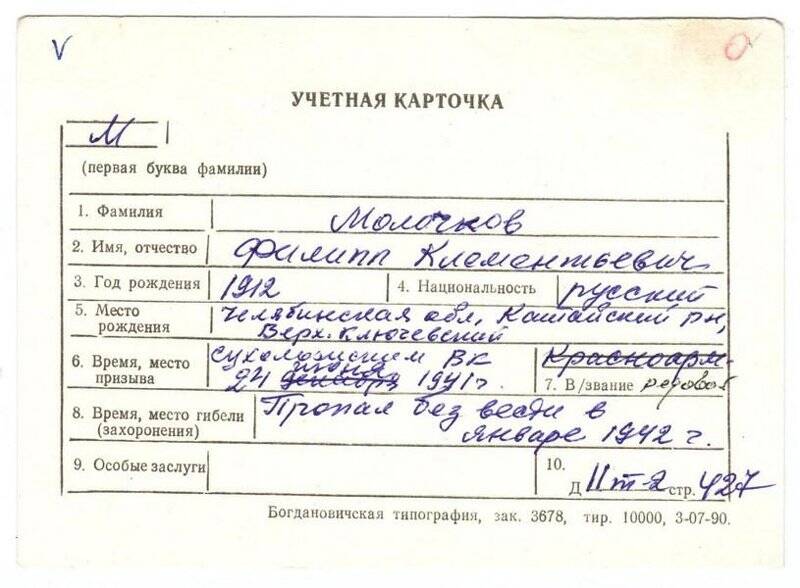 V
УЧЕТНАЯ КАРТОЧКА
М
(первая буква фамилии)
1. Фамилия Молочков
2. Имя, отчество Филипп Клементьевич
3. Год рождения 1912 4. Национальность русский
5. Место рождения Челябинская обл, Катайский рн,
Верх. Ключевский
6. Время, место призыва Сухоложским ВК
июня
24 декабря 1941 г.
Красноарм.
7. В/звание рядовой
8. Время, место гибели (захоронения) Пропал без вести в
январе 1942 г.
9. Особые заслуги
10.
Д IIт-2 стр. 427
Богдановичская типография, зак. 3678, тир. 10000, 3-07-90.